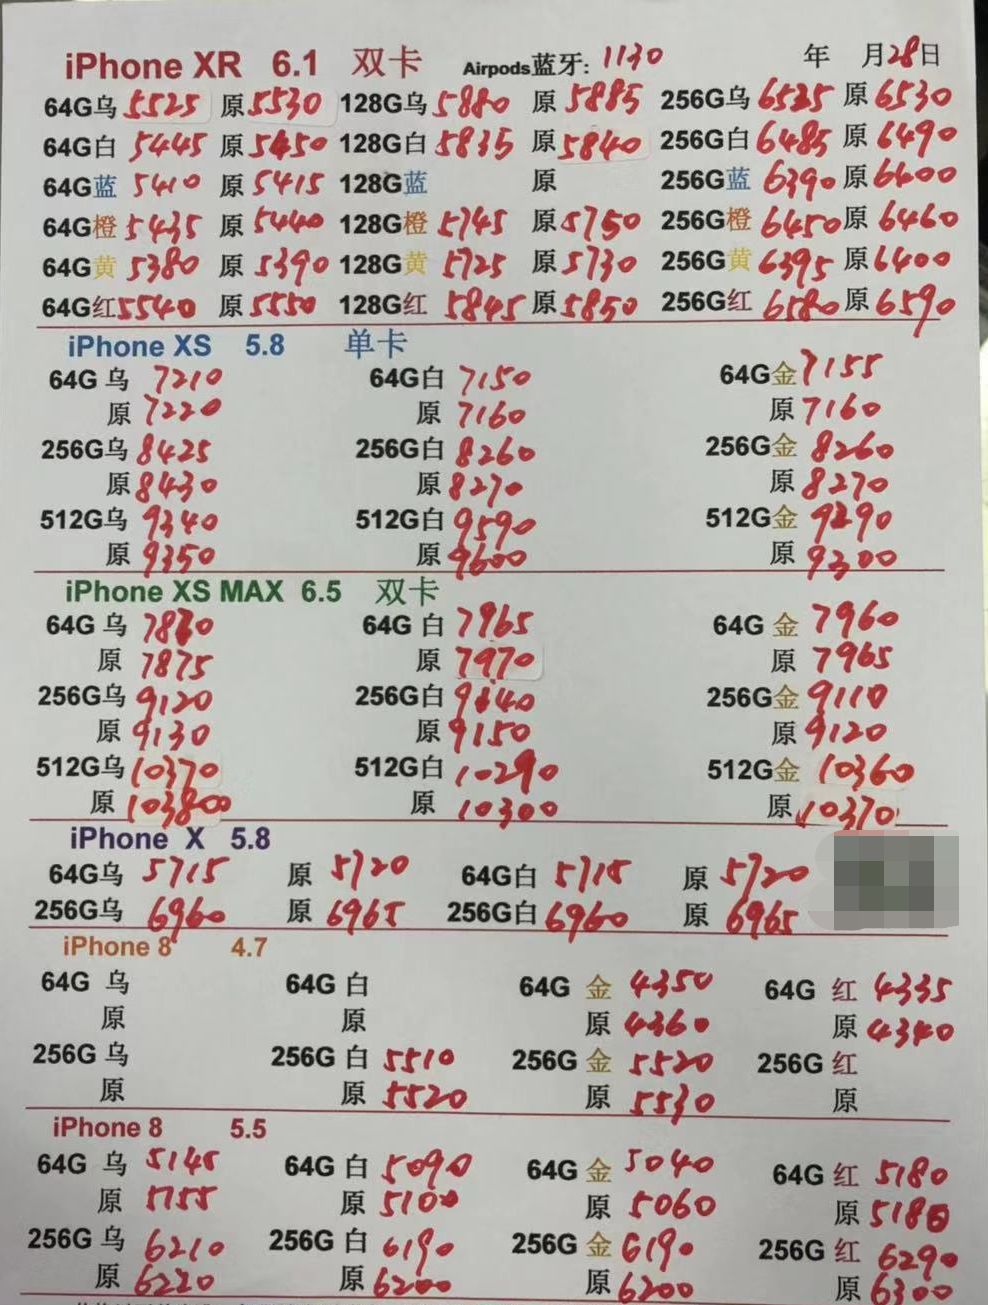 iPhone XR 6.1 双卡 Airpods蓝牙: 1130 年 月28日
64G乌 5525 原5530 128G乌 5880 原 5885 256G乌 6525 原 6530
64G白 5445 原5450 128G白 5835 原 5840 256G白 6485 原 6490
64G蓝 5410 原 5415 128G蓝 原 256G蓝 6390 原 6400
64G橙 5435 原 5440 128G橙 5745 原 5750 256G橙 6450 原 6460
64G黄 5380 原 5390 128G黄 5725 原 5730 256G黄 6395 原 6400
64G红 5540 原 5550 128G红 5845 原 5850 256G红 6580 原 6590
iPhone XS 5.8 单卡
64G 乌 7210 64G白 7150 64G金 7155
原 7220 原 7160 原 7160
256G乌 8425 256G白 8260 256G金 8260
原 8430 原 8270 原 8270
512G乌 9340 512G白 9590 512G金 9290
原 9350 原 9600 原 9300
iPhone XS MAX 6.5 双卡
64G 乌 7870 64G 白 7965 64G 金 7960
原 7875 原 7970 原 7965
256G乌 9120 256G白 9140 256G金 9110
原 9130 原 9150 原 9120
512G乌 10370 512G白 10290 512G金 10360
原 103800 原 10300 原 10370
iPhone X 5.8
64G乌 5715 原 5720 64G白 5715 原 5720
256G乌 6960 原 6965 256G白 6960 原 6965
iPhone 8 4.7
64G 乌 64G 白 64G 金 4350 64G 红 4335
原 原 原 4360 原 4340
256G 乌 256G 白 5510 256G 金 5520 256G 红
原 原 5520 原 5530 原
iPhone 8 5.5
64G 乌 5145 64G 白 5090 64G 金 5040 64G 红 5180
原 5155 原 5100 原 5060 原 5180
256G 乌 6210 256G 白 6190 256G 金 6190 256G 红 6290
原 6220 原 6200 原 6200 原 6300